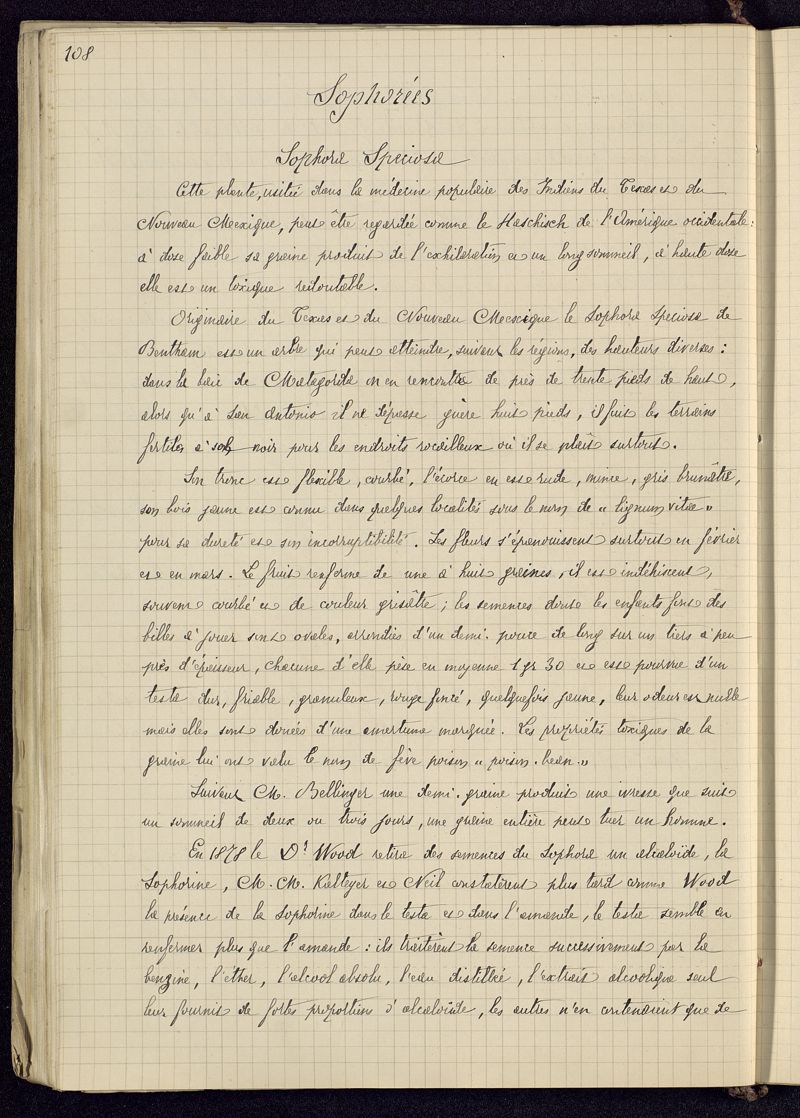 108
Sophorées
Sophora Speciosa
Cette plante, usitée dans la médecine populaire des Indiens du Texas et du
Nouveau Mexique, peut être regardée comme le Haschisch de l'Amérique occidentale :
à dose faible sa graine produit de l'exhilaration et un long sommeil, à haute dose
elle est un toxique redoutable.
Originaire du Texas et du Nouveau Mexique le Sophora Speciosa de
Bentham est un arbre qui peut atteindre, suivant les régions, des hauteurs diverses :
dans la baie de Matagorda on en rencontre de près de trente pieds de haut,
alors qu'à San Antonio il ne dépasse guère huit pieds, il fuit les terrains
fertiles à sol noir pour les endroits rocailleux où il se plaît surtout.
Son tronc est flexible, courbé, l'écorce en est rude, mince, gris brunâtre,
son bois jaune est connu dans quelques localités sous le nom de « lignum vitae »
pour sa dureté et son incorruptibilité. Les fleurs s'épanouissent surtout en février
et en mars. Le fruit renferme de une à huit graines, il est indéhiscent,
souvent courbé et de couleur grisâtre ; les semences dont les enfants font des
billes à jouer sont ovales, arrondies d'un demi-pouce de long sur un tiers à peu
près d'épaisseur, chacune d'elle pèse en moyenne 1 gr 30 et est pourvue d'un
testa dur, friable, granuleux, rouge foncé, quelquefois jaune, leur odeur est nulle
mais elles sont douées d'une amertume marquée. Les propriétés toxiques de la
graine lui ont valu le nom de fève poison « poison-bean »
Suivant M. Bellinger une demi-graine produit une ivresse que suit
un sommeil de deux ou trois jours, une graine entière peut tuer un homme.
En 1878 le Dr Wood retira des semences du Sophora un alcaloïde, la
Sophorine, M. M. Kalteyer et Neil constatèrent plus tard comme Wood
la présence de la Sophorine dans le testa et dans l'amande, le testa semble en
renfermer plus que l'amande : ils traitèrent la semence successivement par la
benzine, l'éther, l'alcool absolu, l'eau distillée, l'extrait alcoolique seul
leur fournit de fortes proportions d'alcaloïde, les autres n'en contenaient que de